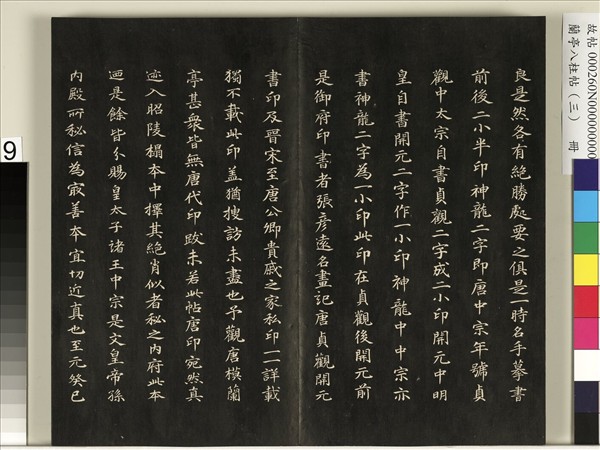 故帖 000260N000000000
蘭亭八柱帖（三） 冊
良是然各有絕勝處要之俱是一時名手摹書
前後二小半印神龍二字即唐中宗年號貞
觀中太宗自書貞觀二字成二小印開元中明
皇自書開元二字作一小印神龍中中宗亦
書神龍二字為一小印此印在貞觀後開元前
是御府印書者張彥遠名畫記唐貞觀開元
書印及晉宋至唐公卿貴戚之家私印一一詳載
獨不載此印蓋猶搜訪未盡也予觀唐模蘭
亭甚衆皆無唐代印跋未若此帖唐印宛然真
迹入昭陵搨本中擇其絕肖似者秘之內府此本
迺是餘皆分賜皇太子諸王中宗是文皇帝孫
內殿所秘信為㝡善本宜切近真也至元癸巳
9